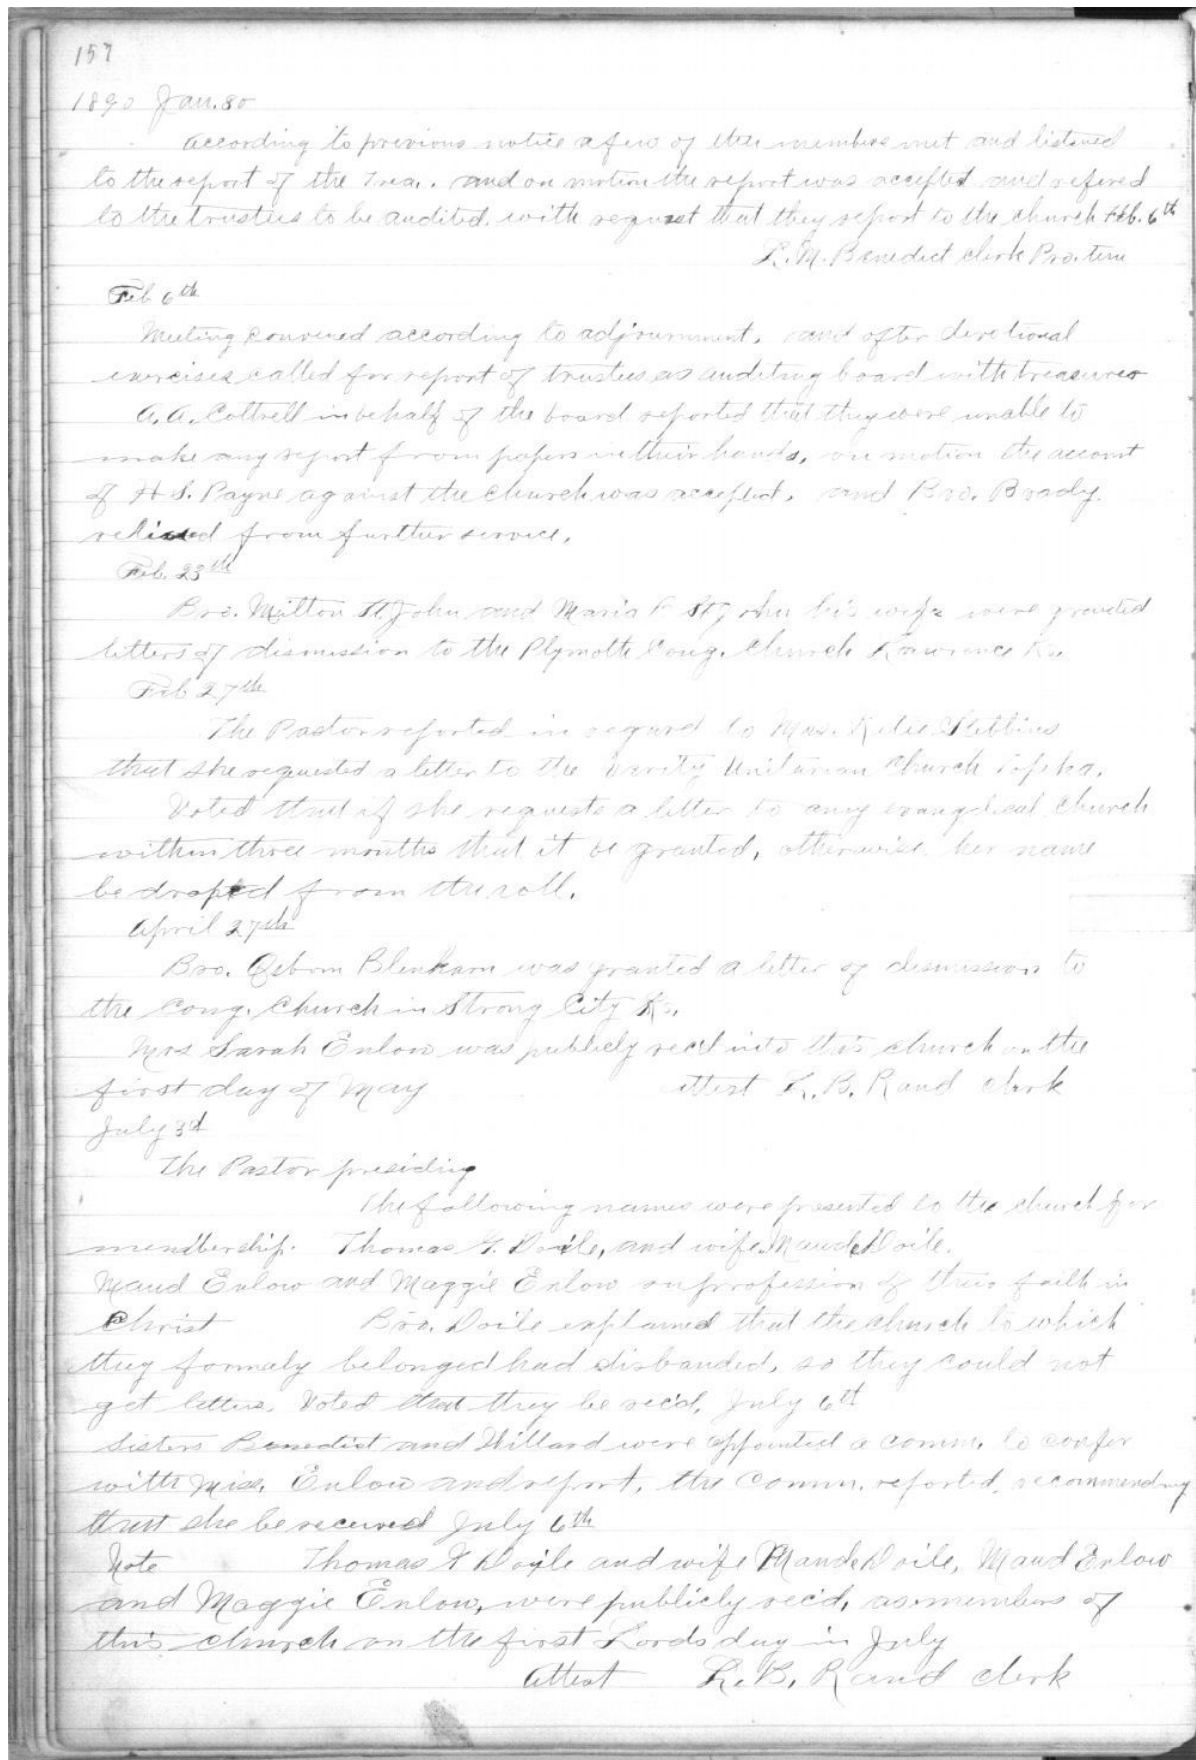 157
1890 Jan. 30
According to previous notice a few of the members met and listened
to the report of the Trea. and on motion the report was accepted and refered
to the trustees to be audited. with request that they report to the church Feb. 6th
L. M. Benedict clerk Pro. tem
Feb 6th
Meeting convened according to adjournment. and after devotional
exercises called for report of trustees as auditing board with treasurer
A. A. Cottrell in behalf of the board reported that they were unable to
make any report from papers in their hands, on motion the account
of H S. Payne against the church was accepted. and Bro. Brady.
relieved from further service.
Feb. 23th
Bro. Milton St. John and Maria P St John his wife were granted
letters of dismission to the Plymoth Cong. Church Lawrence Ks.
Feb 27th
The Pastor reported in regard to Mrs. Katie Stebbins
that she requested a letter to the Unitarian Church Topeka.
Voted that if she requests a letter to any evanglical church
within three months that it be granted, otherwise her name
be droped from the roll.
April 27th
Bro. Osborn Blenkarn was granted a letter of dismission to
the Cong. Church in Strong City Ks.
Mrs Sarah Enlow was publicly recd into this church on the
first day of May attest L. B. Rand clerk
July 3d
The Pastor presiding
The following names were presented to the church for
membership. Thomas G. Doile, and wife Maude Doile.
Maud Enlow and Maggie Enlow on profession of their faith in
Christ Bro. Doile explained that the church to which
they formaly belonged had disbanded, so they could not
get letters. Voted that they be rec'd, July 6th
Sisters Benedict and Willard were appointed a comm. to confer
with Miss. Enlow and report, the Comm. reported, recommending
that she be received July 6th
Note Thomas G Doile and wife Maude Doile, Maud Enlow
and Maggie Enlow, were publicly rec'd, as members of
this church on the first Lords day in July
Attest L. B. Rand clerk